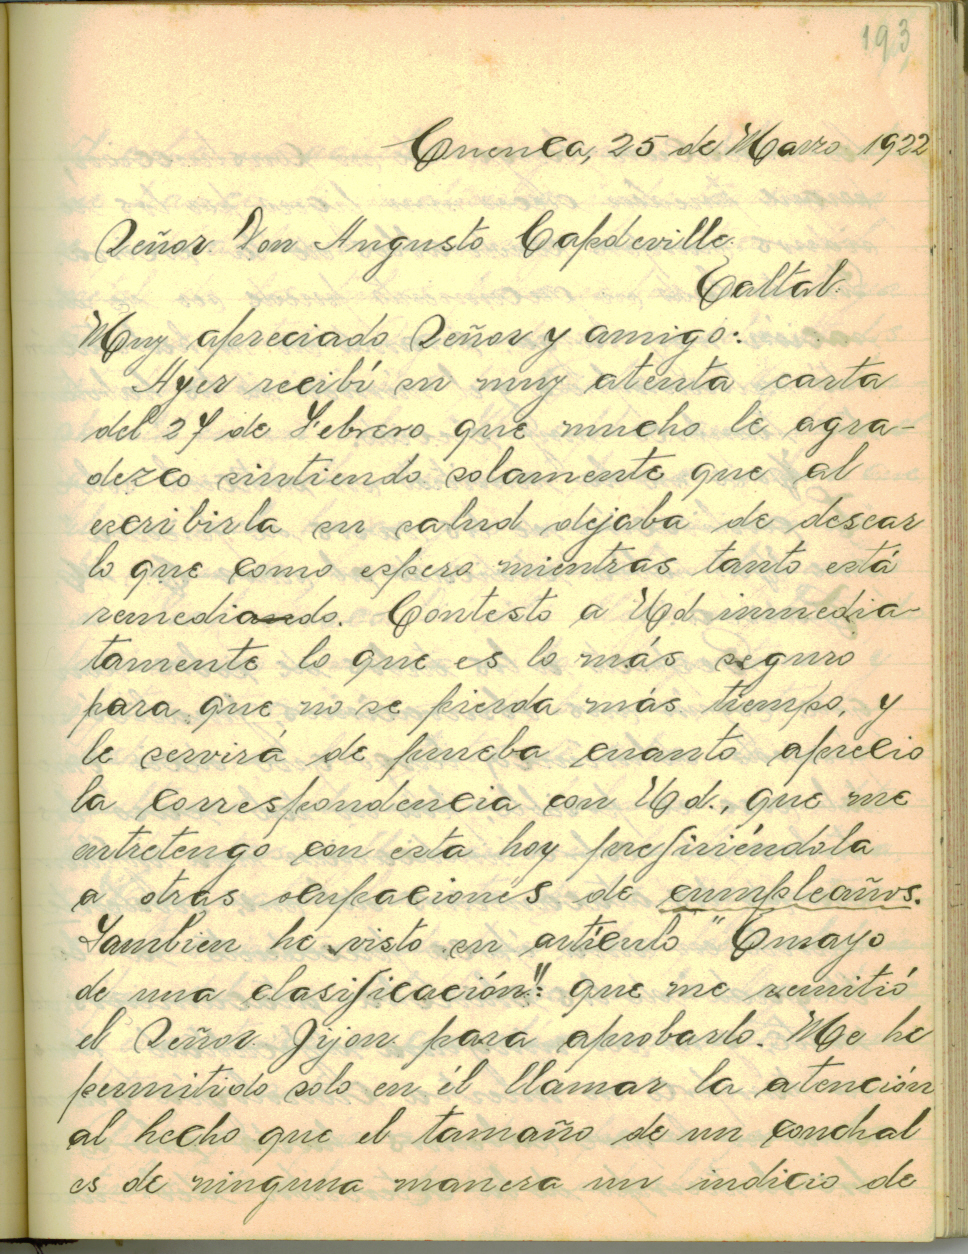 193
Cuenca, 25 de Marzo 1922
Señor Don Augusto Capdeville.
Taltal.
Muy apreciado Señor y amigo:
Ayer recibí su muy atenta carta
del 27 de Febrero que mucho le agra-
dezco sintiendo solamente que al
escribirla su salud dejaba de desear
lo que como espero mientras tanto está
remediando. Contesto a Ud inmedia-
tamente lo que es lo más seguro
para que no se pierda más tiempo, y
le servirá de prueba cuanto aprecio
la correspondencia con Ud., que me
entretengo con esta hoy prefiriéndola
a otras ocupaciones de cumpleaños.
Tambien he visto su artículo "Ensayo
de una clasificación": que me remitió
el Señor Jijon para aprobarlo. Me he
permitido solo en él llamar la atención
al hecho que el tamaño de un conchal
es de ninguna manera un indicio de